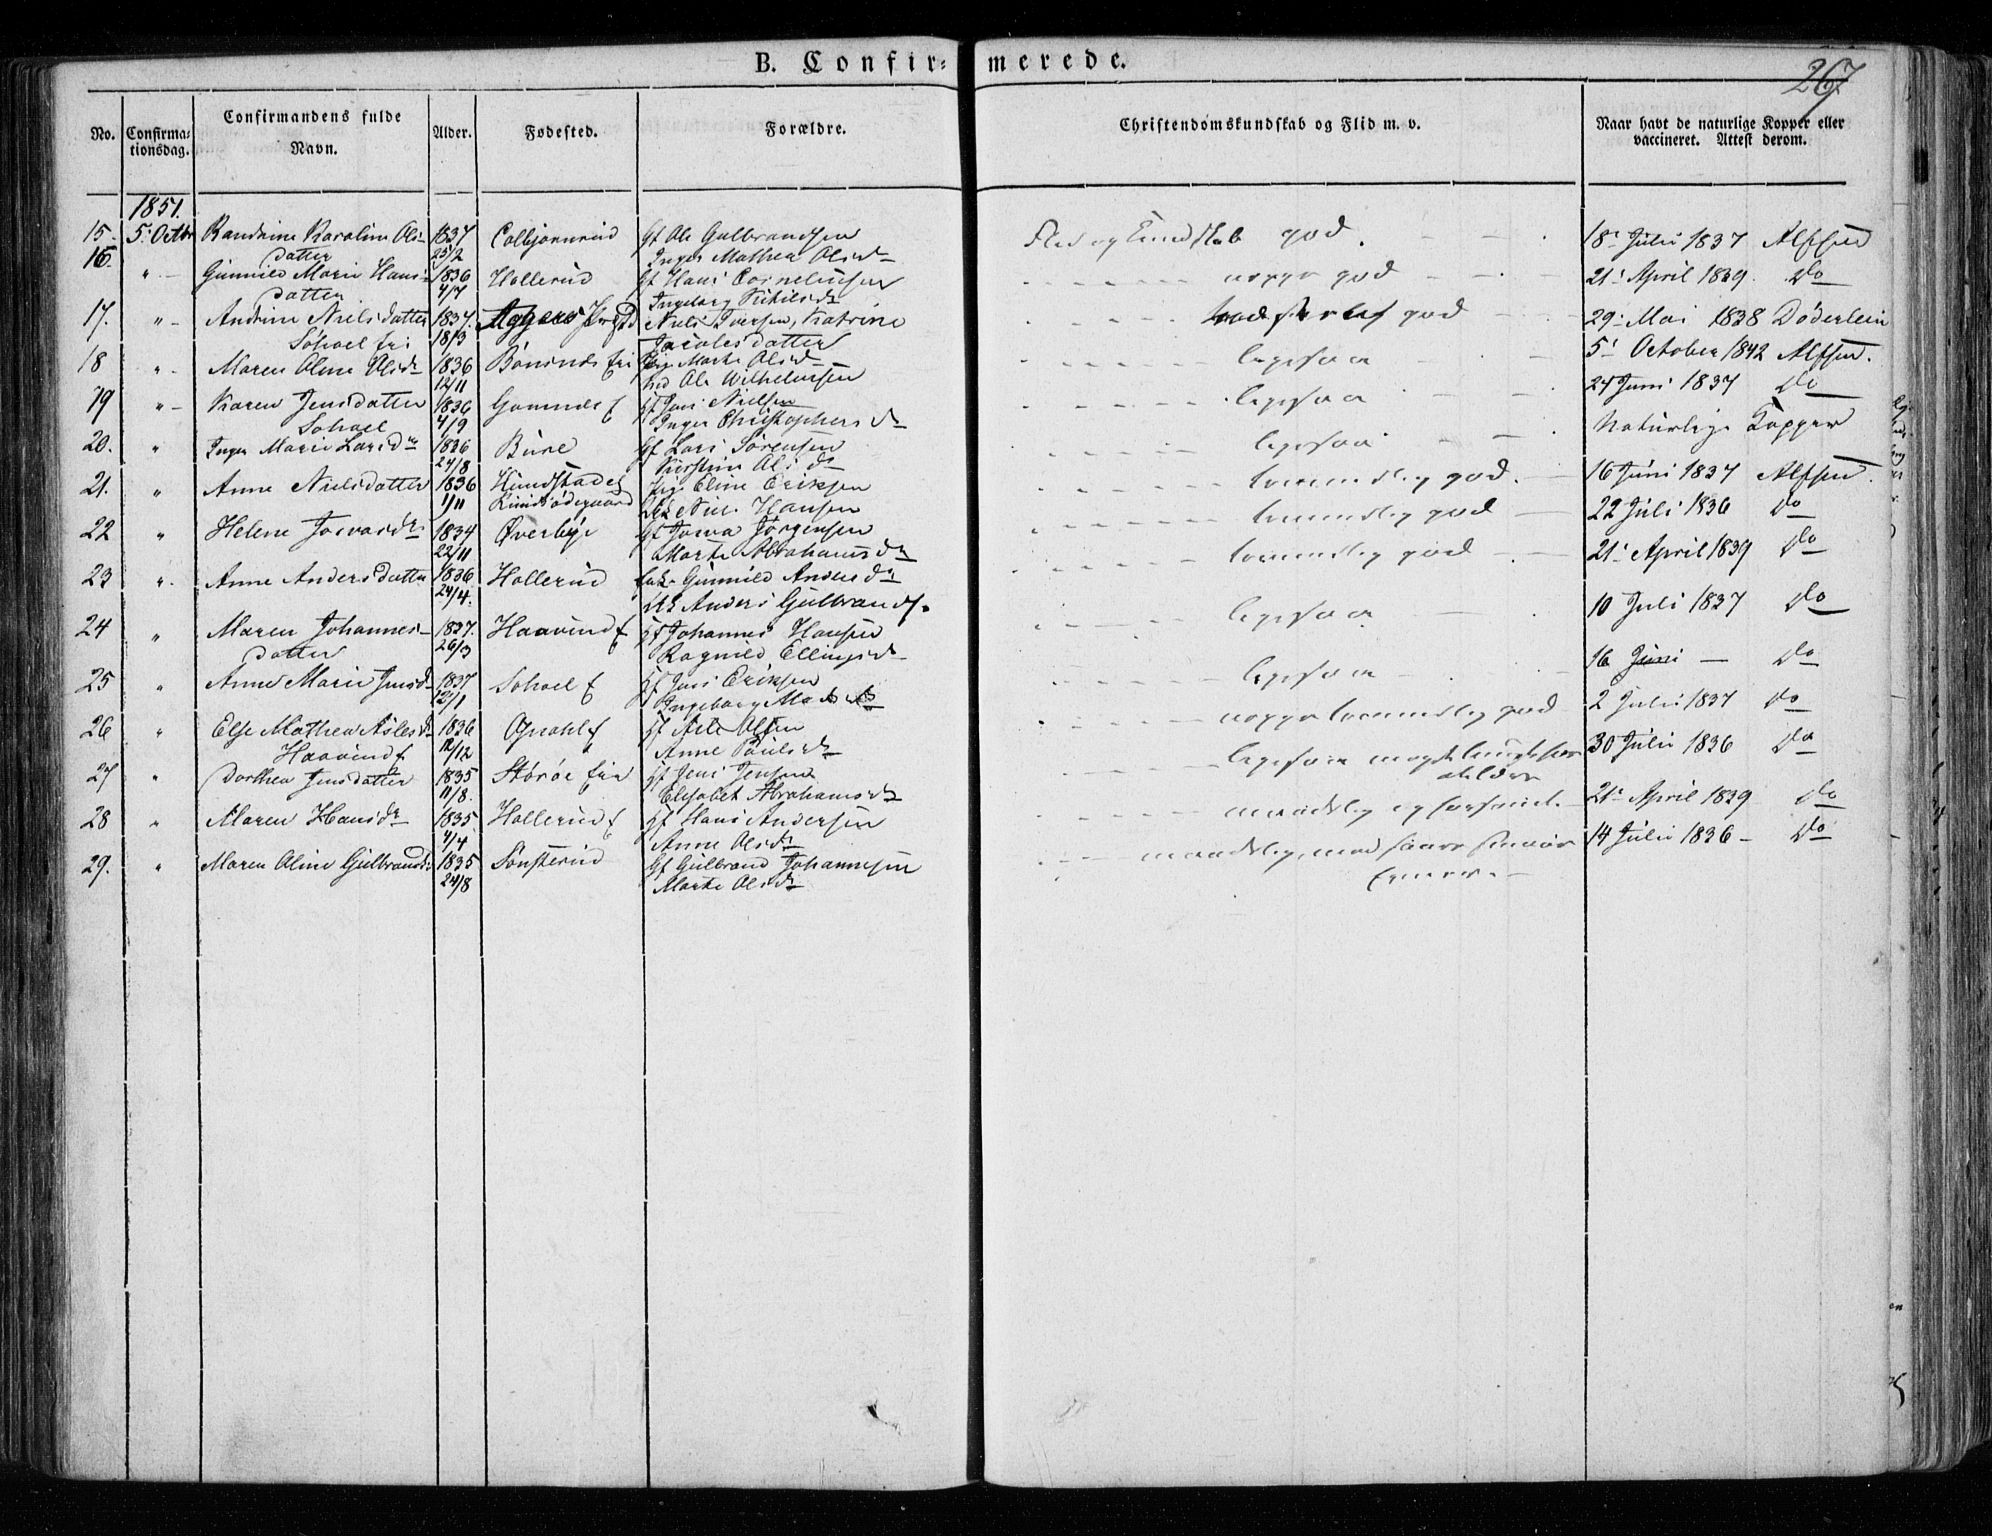 B. Confirmerede.
267
No.
Confirmationsdag.
Confirmandens fulde Navn.
Alder.
Fødested.
Forældre.
Christendomskundskab og Flid m. v.
Naar havt de naturlige Kopper eller vaccineret. Attest derom.
1851.
15. 5. Octbr Randrine Karoline Ols- 1837 Colbjørnsrud Gf Ole Gulbrandsen Flid og Kundskab god. 18 Juli 1837 Alfsen
datter 25/2 Inger Mathea Olsd
16. " Gunnild Marie Hans- 1836 Hollerud Gf Hans Cornelinsen god 21 April 1839. Do
datter 4/7 Ingeborg
17. " Andrine Nielsdatter 1837. Aggers Niels Iversen, Katrine god 29 Mai 1838 Døderlein
Sohoel 18/3 Jacobsdatter
18 " Maren Oline Olsd 1836 Bønsnes Marte Olsd ligesaa 5 October 1842 Alfsen.
12/11 Ole Wilhelmsen
19 " Karen Jensdatter 1836 Gomnes Gf Jens Nielsen ligesaa 24 Juni 1837 Do
Sohoel 4/9 Inger Christophersd
20. " Inger Marie Larsdr 1836 Bure Gf Lars Sørensen ligesaa Naturlige Kopper
24/8 Kirstine Olsd
21. " Anne Nielsdatter 1836 Hundstad Eline Eriksen temmelig god. 16 Juni 1837 Alfsen
1/11 Niels Hansen
22 " Helene Josvasdr 1834 Øverbye Gf Josva Jørgensen temmelig god 22 Juli 1836 Do
22/11 Marte Abrahamsd
23 " Anne Andersdatter 1836 Hollerud Gunnild Andersd temmelig god 21 April 1839 Do
24/4. Anders Gulbrands.
24 " Maren Johannes- 1837. Haavind Gf Johannes Hansen ligesaa 10 Juli 1837 Do
datter 26/3 Ragnild Ellingsd
25 " Anne Marie Jensd 1837 Sohoel Gf Jens Eriksen ligesaa 16 Juni — Do
12/1 Ingeborg Madsd
26 " Else Mathea Aslesd 1836 Opsahl Gf Asle Olsen temmelig god 2 Juli 1837 Do
Haavind 12/12 Anne Paulsd
27 " Dorthea Jensdatter 1835 Storøe Gf Jens Jensen ligesaa 30 Juli 1836 Do
11/8. Elisabet Abrahamsd
28 " Maren Hansdr 1835 Hollerud Gf Hans Andersen maadelig og 21 April 1839 Do
4/4 Anne Olsd
29. " Maren Oline Gulbrandsd 1835 Sønsterud Gf Gulbrand Johannesen maadelig, 14 Juli 1836 — Do
24/8 Marte Olsd